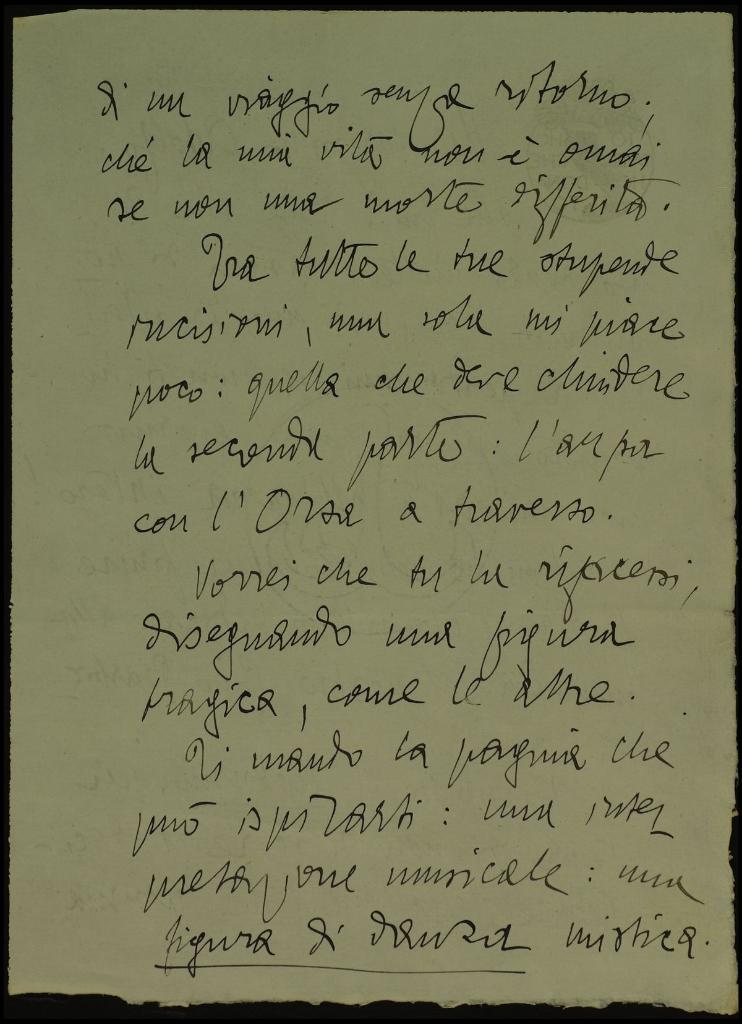 di un viaggio senza ritorno;
ché la mia vita non è omai
se non una morte differita.
Tra tutte le tue stupende
incisioni, una sola mi piace
poco: quella che deve chiudere
la seconda parte: l'arpa
con l'Orsa a traverso.
Vorrei che tu la rifacessi,
disegnando una figura
tragica, come le altre.
Ti mando la pagina che
può ispirarti: una inter
pretazione musicale: una
figura di danza mistica.